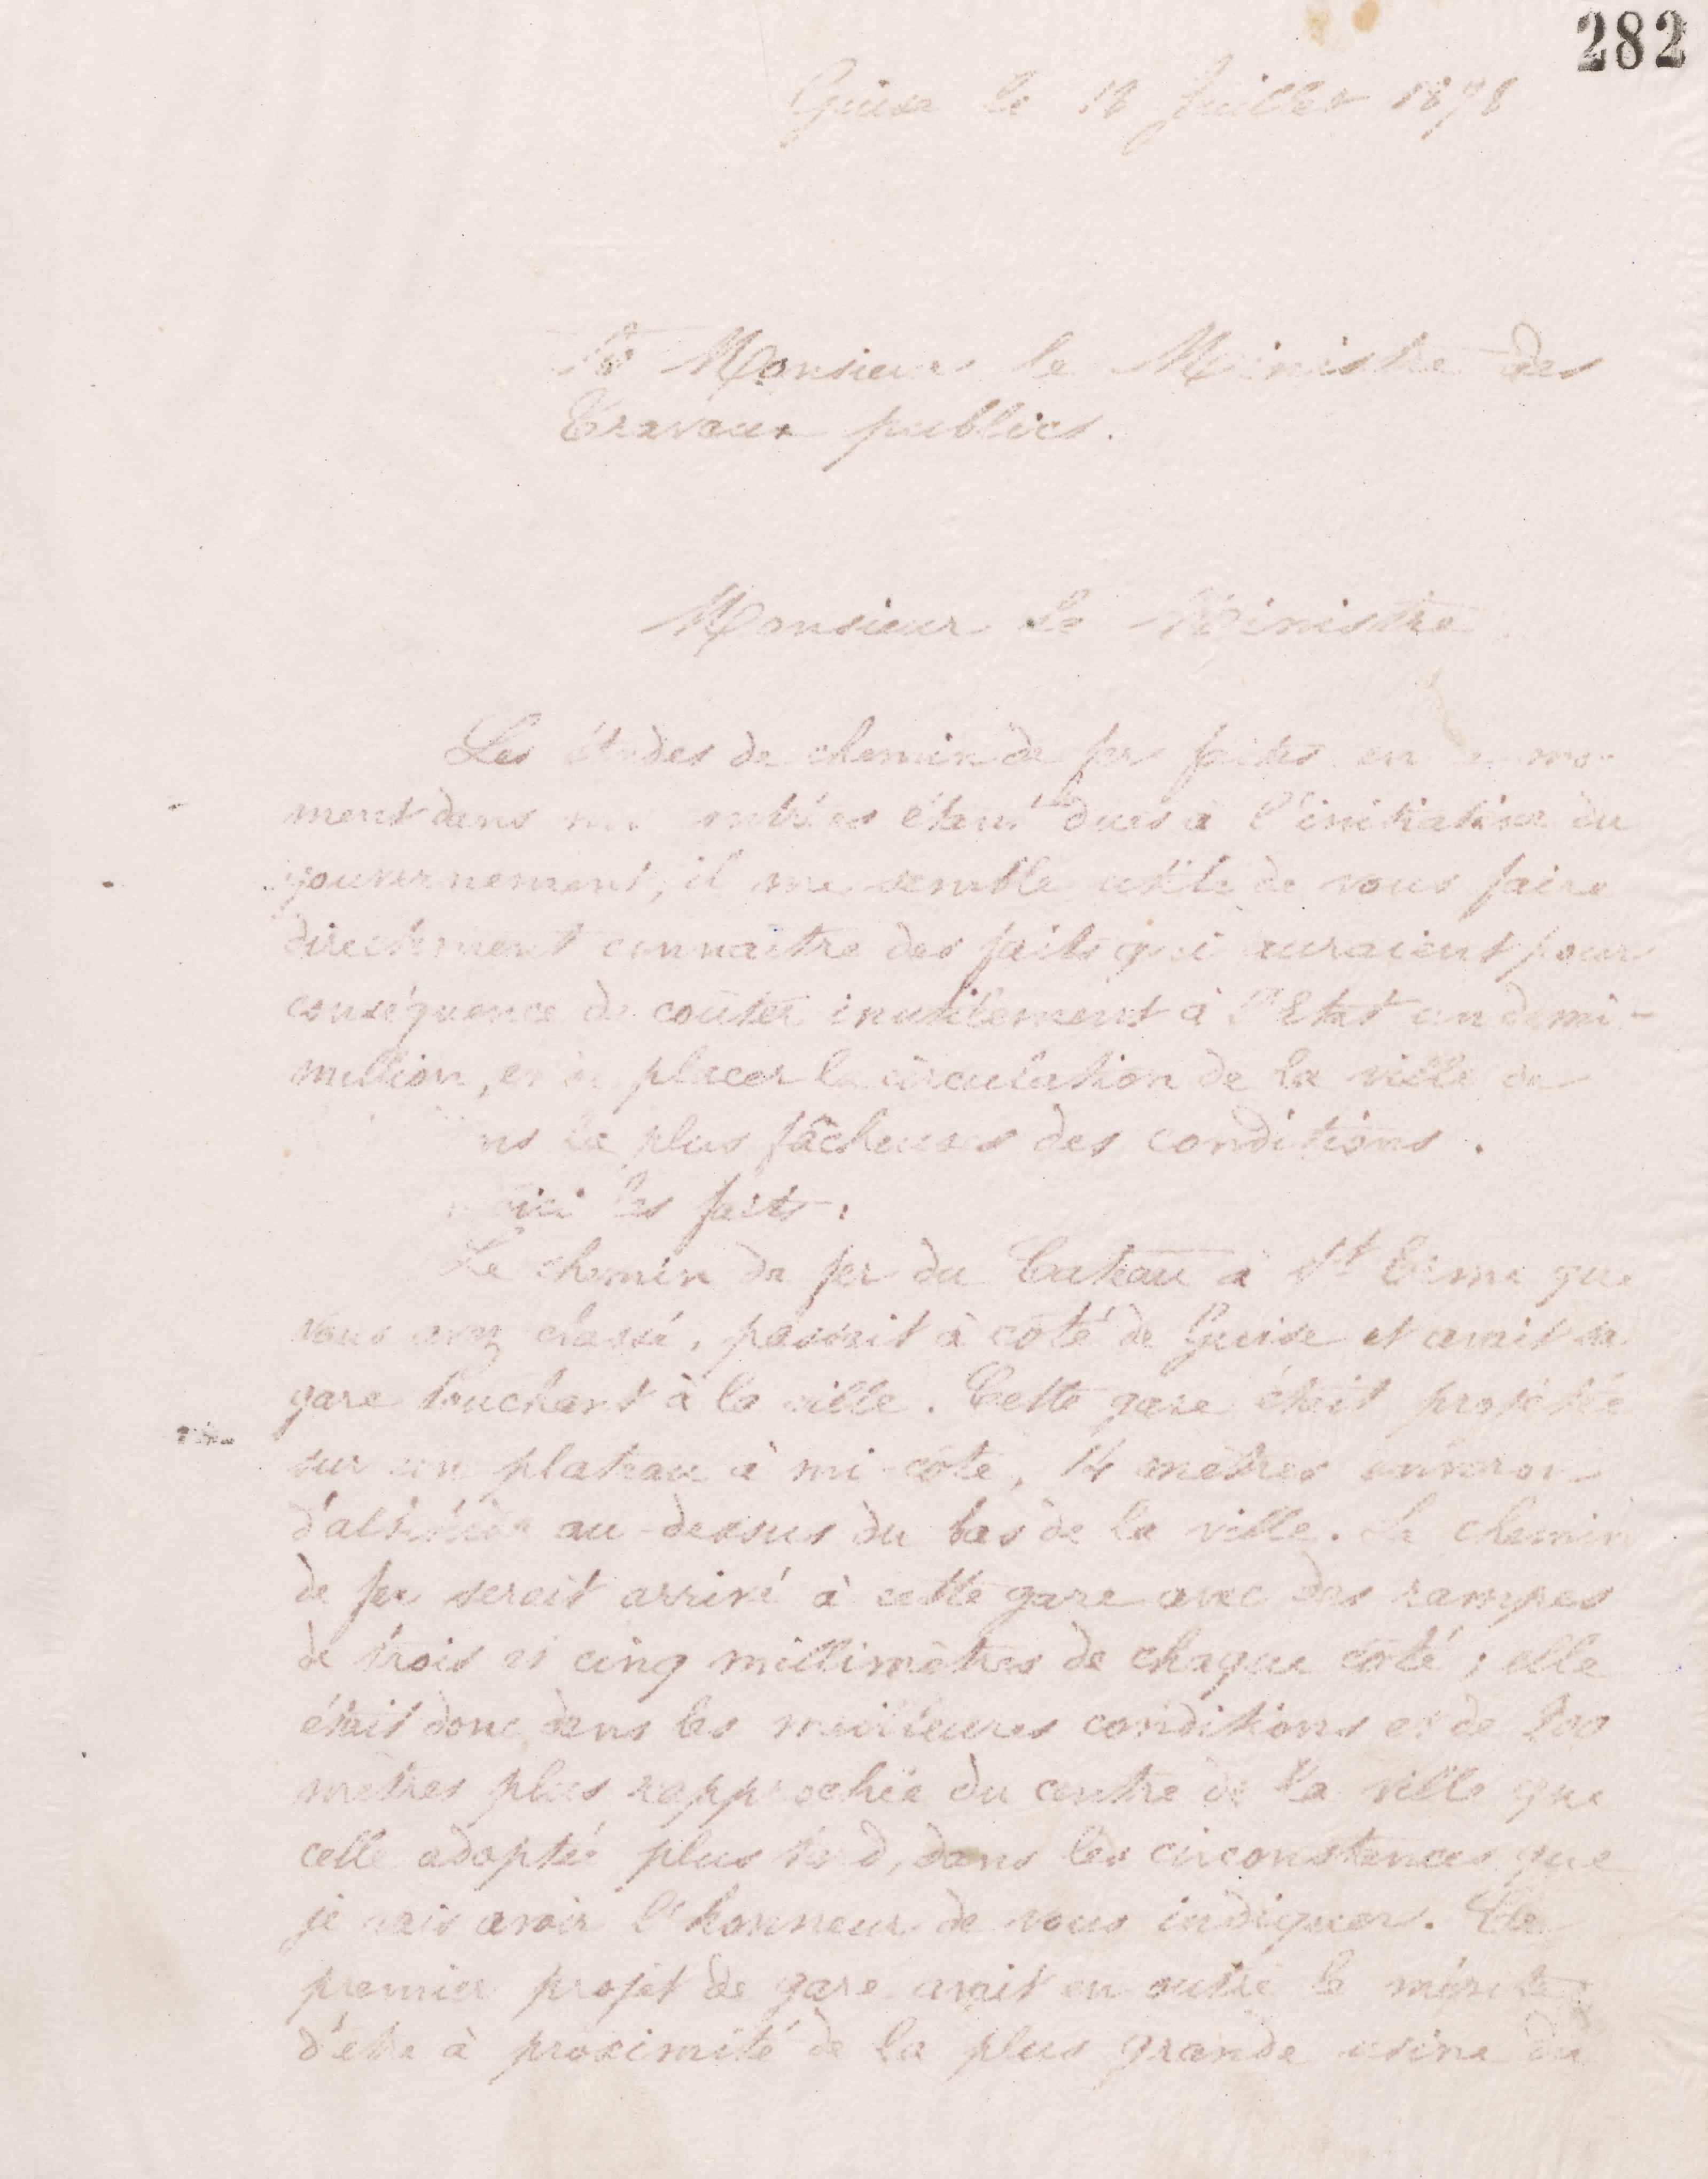 282
Guise le 18 Juillet 1878
A Monsieur le Ministre des
Travaux publics.
Monsieur le Ministre
Les études de chemin de fer faites en ce mo-
ment dans nos contrées étant dues à l'initiative du
gouvernement, il me semble utile de vous faire
directement connaître des faits qui auraient pour
conséquence de coûter inutilement à l'Etat un demi-
million, et de placer la circulation de la ville de
ns la plus fâcheuses des conditions.
Voici les faits:
Le chemin de fer du Cateau à St Erme que
vous avez classé, passait à côté de Guise et avait sa
gare touchant à la ville. Cette gare était projetée
sur un plateau à mi-côte, 14 mètres environ
d'altitude au-dessus du bas de la ville. Le chemin
de fer serait arrivé à cette gare avec des rampes
de trois et cinq millimètres de chaque côté; elle
était donc dans les meilleures conditions et de 200
mètres plus rapprochée du centre de la ville que
celle adoptée plus tard, dans les circonstances que
je vais avoir l'honneur de vous indiquer. Ce
premier projet de gare avait en outre le mérite
d'être à proximité de la plus grande usine du